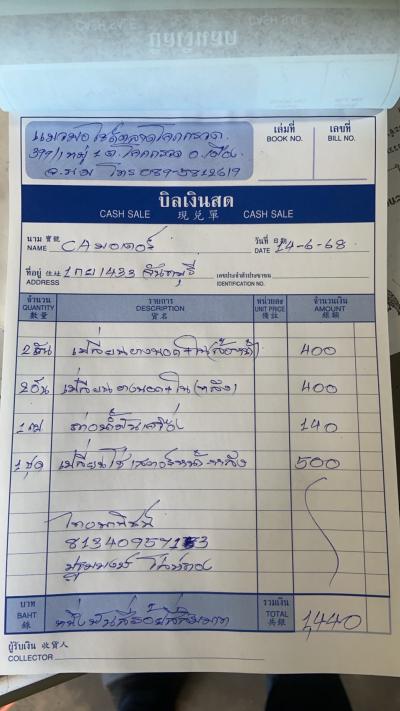 CASH SALE
เล่มที่ เลขที่
BOOK NO. BILL NO.
399/1 หมู่ 1 ต.โคกกรวด อ.เมือง
จ.นม โทร 089-5812619
บิลเงินสด
CASH SALE 現兌單 CASH SALE
นาม 寶號 CAมอเตอร์ วันที่ 日期 14-6-68
NAME DATE
ที่อยู่ 住址 1433 เลขประจำตัวประชาชน
ADDRESS IDENTIFICATION NO.
จำนวน รายการ หน่วยละ จำนวนเงิน
QUANTITY DESCRIPTION UNIT PRICE AMOUNT
數量 貨名 備註 銀額
2 เส้น เปลี่ยนยางนอก+ใน 400
2 เส้น เปลี่ยนยางนอก+ใน (หลัง) 400
1 ถ่ายน้ำมันเครื่อง 140
1 ชุด เปลี่ยนโซ่ สเตอร์หน้า-หลัง 500
ไทยพาณิชย์
บาท หนึ่งพันสี่ร้อยสี่สิบบาท รวมเงิน 1,440
BAHT TOTAL
銖 共銀
ผู้รับเงิน 收貨人
COLLECTOR